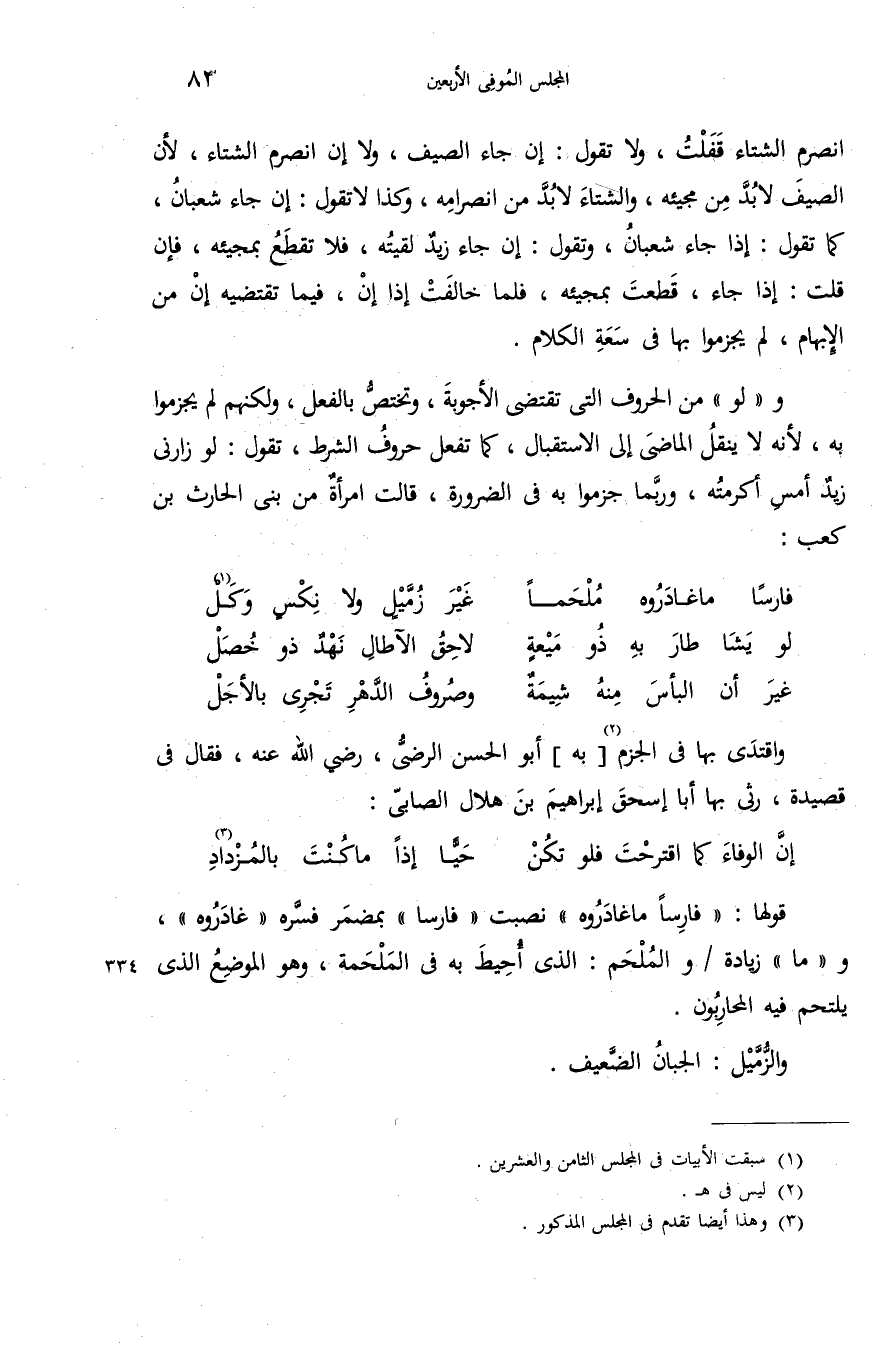 المجلس المُوفِى الأربعين ٨٣
انصرم الشتاء قَفَلْتُ ، ولا تقول : إن جاء الصيف ، ولا إن انصرم الشتاء ، لأن
الصيفَ لابُدَّ مِن مجيئه ، والشتاءَ لابُدَّ من انصرامِه ، وكذا لاتقول : إن جاء شعبانُ ،
كما تقول : إذا جاء شعبانُ ، وتقول : إن جاء زيدٌ لقيتُه ، فلا تقطَعُ بمجيئه ، فإن
قلت : إذا جاء ، قَطعتَ بمجيئه ، فلما خالفَتْ إذا إنْ ، فيما تقتضيه إنْ من
الإِبهام ، لم يجزموا بها فى سَعَةِ الكلام .
و « لو » من الحروف التى تقتضى الأجوبةَ ، وتختصُّ بالفعل ، ولكنهم لم يجزموا
به ، لأنه لا ينقلُ الماضىَ إلى الاستقبال ، كما تفعل حروفُ الشرط ، تقول : لو زارنى
زيدٌ أمسِ أكرمتُه ، وربَّما جزموا به فى الضرورة ، قالت امرأةٌ من بنى الحارث بن
كعب :
فارسًا ماغـادَرُوه مُلْحَمــاً غَيْرَ زُمَّيْلٍ ولا نِكْسٍ وَكَـلْ (١)
لو يَشَا طارَ بهِ ذُو مَيْعةٍ لاحِقُ الآطالِ نَهْدٌ ذو خُصَلْ
غيرَ أن البأسَ مِنهُ شِيمَةٌ وصُروفُ الدَّهْرِ تَجْرِى بالأجَلْ
واقتدَى بها فى الجزم (٢) [ به ] أبو الحسن الرضىُّ ، رضي الله عنه ، فقال فى
قصيدة ، رثى بها أبا إسحقَ إبراهيمَ بنَ هلال الصابىّ :
إنَّ الوفاءَ كما اقترحْتَ فلو تكُنْ حَيًّـا إذاً ماكُـنْتَ بالمُـزْدادِ (٣)
قولها : « فارِساً ماغادَرُوه » نصبت « فارسا » بمضمَر فسَّره « غادَرُوه » ،
و « ما » زيادة / و المُلْحَم : الذى أُحِيطَ به فى المَلْحَمة ، وهو الموضِعُ الذى ٣٣٤
يلتحم فيه المحارِبُون .
والزُّمَّيْل : الجبانُ الضَّعيف .
(١) سبقت الأبيات فى المجلس الثامن والعشرين .
(٢) ليس فى هـ .
(٣) وهذا أيضا تقدم فى المجلس المذكور .